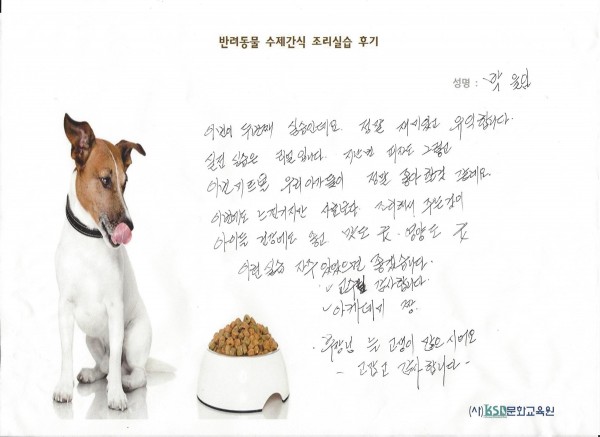 반려동물 수제간식 조리실습 후기
성명 : 박
이번이 두번째 실습인데요. 정말 재미있고 유익합니다.
실전 실습은 최고입니다. 지난번 피자도 그렇고
이건 우리아가들이 정말 좋아할것 같네요.
이번에도 느낀거지만 사료보단 조리해서 주는것이
아이들 건강에도 좋고 맛도 굿. 영양도 굿
이런 실습 자주 있었으면 좋겠습니다.
교수님 감사합니다.
아카데미 짱.
님 늘 고생이 많으시어요
- 고맙고 감사합니다 -
(사)KSD문화교육원